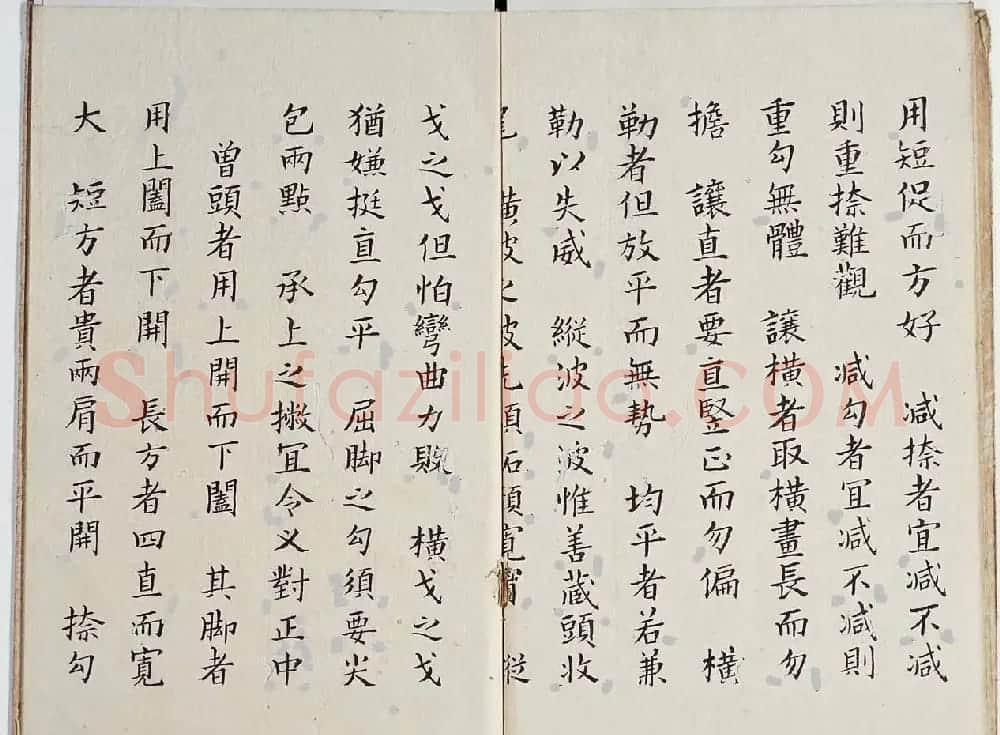 用短促而方好　減捺者宜減不減
則重捺難觀　減勾者宜減不減則
重勾無體　讓橫者取橫畫長而勿
擔　讓直者要直竪正而勿偏　橫
勒者但放平而無勢　均平者若兼
勒以失威　縱波之波惟善蔵頭收
尾　橫波之波先須拓頸寬 縱
戈之戈但怕彎曲力敗　橫戈之戈
猶嫌挺直勾平　屈脚之勾須要尖
包兩點　承上之撇宜令乂對正中
曽頭者用上開而下闔　其脚者
用上闔而下開　長方者四直而寬
大　短方者貴兩肩而平開　捺勾
Shufaziliao.COM